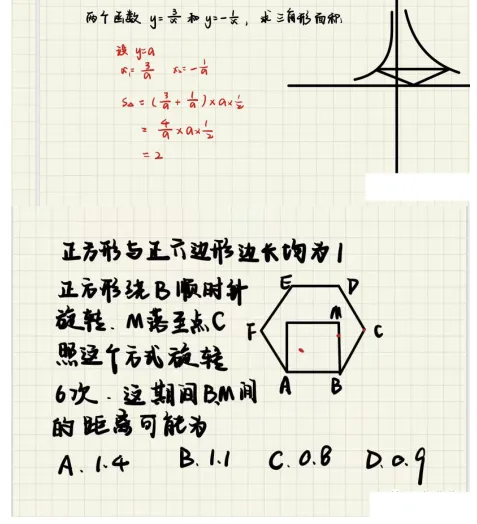 两个函数 y=3/x 和 y=-1/x，求三角形面积
设 y=a
x₁=3/a x₂=-1/a
S△=(3/a+1/a)×a×1/2
=4/a×a×1/2
=2
正方形与正六边形边长均为1
正方形绕B顺时针
旋转.M落至点C
照这个方式旋转
6次.这期间BM间
的距离可能为
E D
M
F C
A B
A.1.4 B.1.1 C.0.8 D.0.9